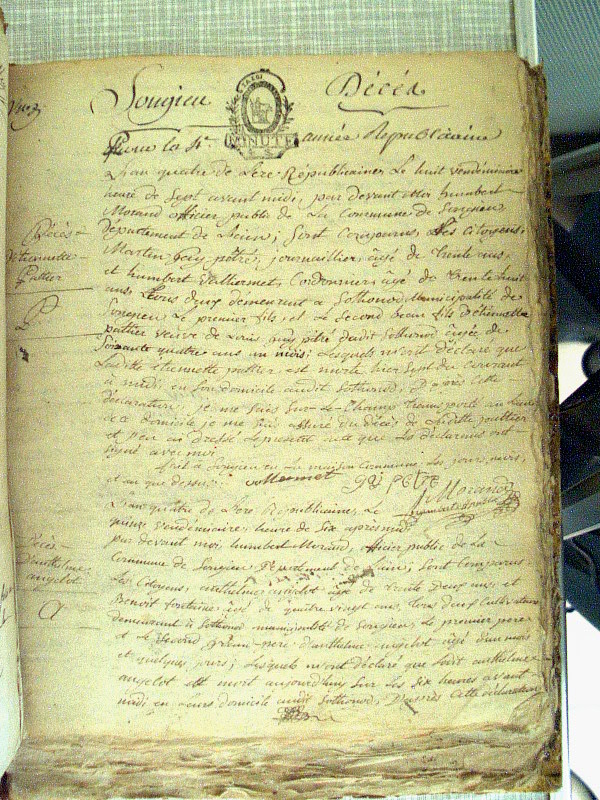 Songieu Décès
MINUTE
Pour la 4e année Républicaine
L'an quatre de L'ere Républicaine Le huit vendémiaire
heure de Sept avant midi, par devant moi humbert
Morand officier public de La Commune de Songieu
Département de L'ain; Sont Comparus Les Citoyens,
Martin Guy pétre, journaillier, âgé de trente ans,
et humbert vallermet, Cordonnier, âgé de trente huit
ans tous deux demeurant a Sothonod, Municipalité de
Songieu, Le premier fils, et Le Second beau fils d'étiennette
pattier veuve de Louis Guy pétre dudit Sothonod âgée de
Soixante quatre ans un mois; Lesquels m'ont déclaré que
Ladite étiennette pattier est morte hier Sept du Courant
à midi en Son domicile audit Sothonod, D'après Cette
déclaration je me Suis Sur-le-Champ transporté au Lieu
de Ce domicile je me Suis assuré du décès de Ladite pattier
et j'en ai Dressé Le présent acte que Les déclarans ont
Signé avec moi
fait a Songieu en La maison Commune Les jour, mois,
et an que dessus.
Mermet Gui petre
Morand
Décès
d'étiennette
Pattier
P
L'an quatre de L'ere Républicaine, Le
quinze vendémiaire, heure de Six après midi
par devant moi, humbert Morand, officier public de La
Commune de Songieu Département de L'ain; Sont Comparus
Les Citoyens, anthelme angelot âgé de trente Deux ans et
Benoit fontaine âgé de quatre vingt ans, tous deux Cultivateurs
demeurant à Sothonod municipalité de Songieu, Le premier pere
et Le Second Grand-pere d'anthelme angelot âgé d'un mois
et quelques jours; Lesquels m'ont déclaré que Ledit anthelme
angelot est mort aujourd'huy Sur Les Six heures avant
midi en Leurs domicile audit Sothonod, D'après Cette déclaration
Décès
D'anthelme
angelot
A